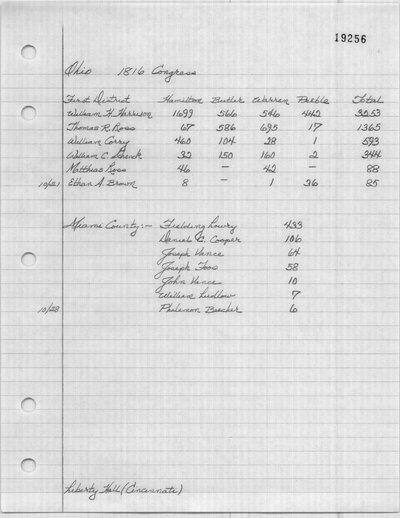 19256
Ohio 1816 Congress
First District Hamilton Butler Warren Preble Total
William H. Harrison 1699 566 546 442 3253
Thomas R. Ross 67 586 695 17 1365
William Corry 460 104 28 1 593
William C. Schenck 32 150 160 2 344
Matthias Ross 46 — 42 — 88
10/21 Ethan A. Brown 8 — 1 76 85
Miami County:— Fielding Lowry 433
Daniel C. Cooper 106
Joseph Vance 64
Joseph Foos 58
John Vance 10
William Ludlow 7
10/28 Philemon Beecher 6
Liberty Hall (Cincinnati)